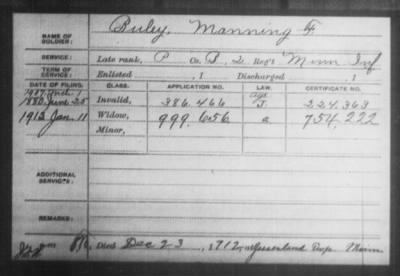 NAME OF SOLDIER: Buley, Manning F
SERVICE: Late rank, P Co. B, 2 Reg't Minn Inf
TERM OF SERVICE: Enlisted , 1 Discharged , 1
DATE OF FILING. CLASS. APPLICATION NO. LAW. CERTIFICATE NO.
1880 June 25 Invalid, 386.466 J. 224.363
1912 Jan. 11 Widow, 999.656 a 754.222
Minor,
ADDITIONAL SERVICES:
REMARKS:
Died Dec 23, 1912, Minn